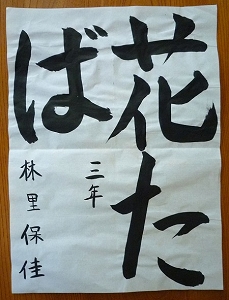 花た
ば
三年
林里保佳